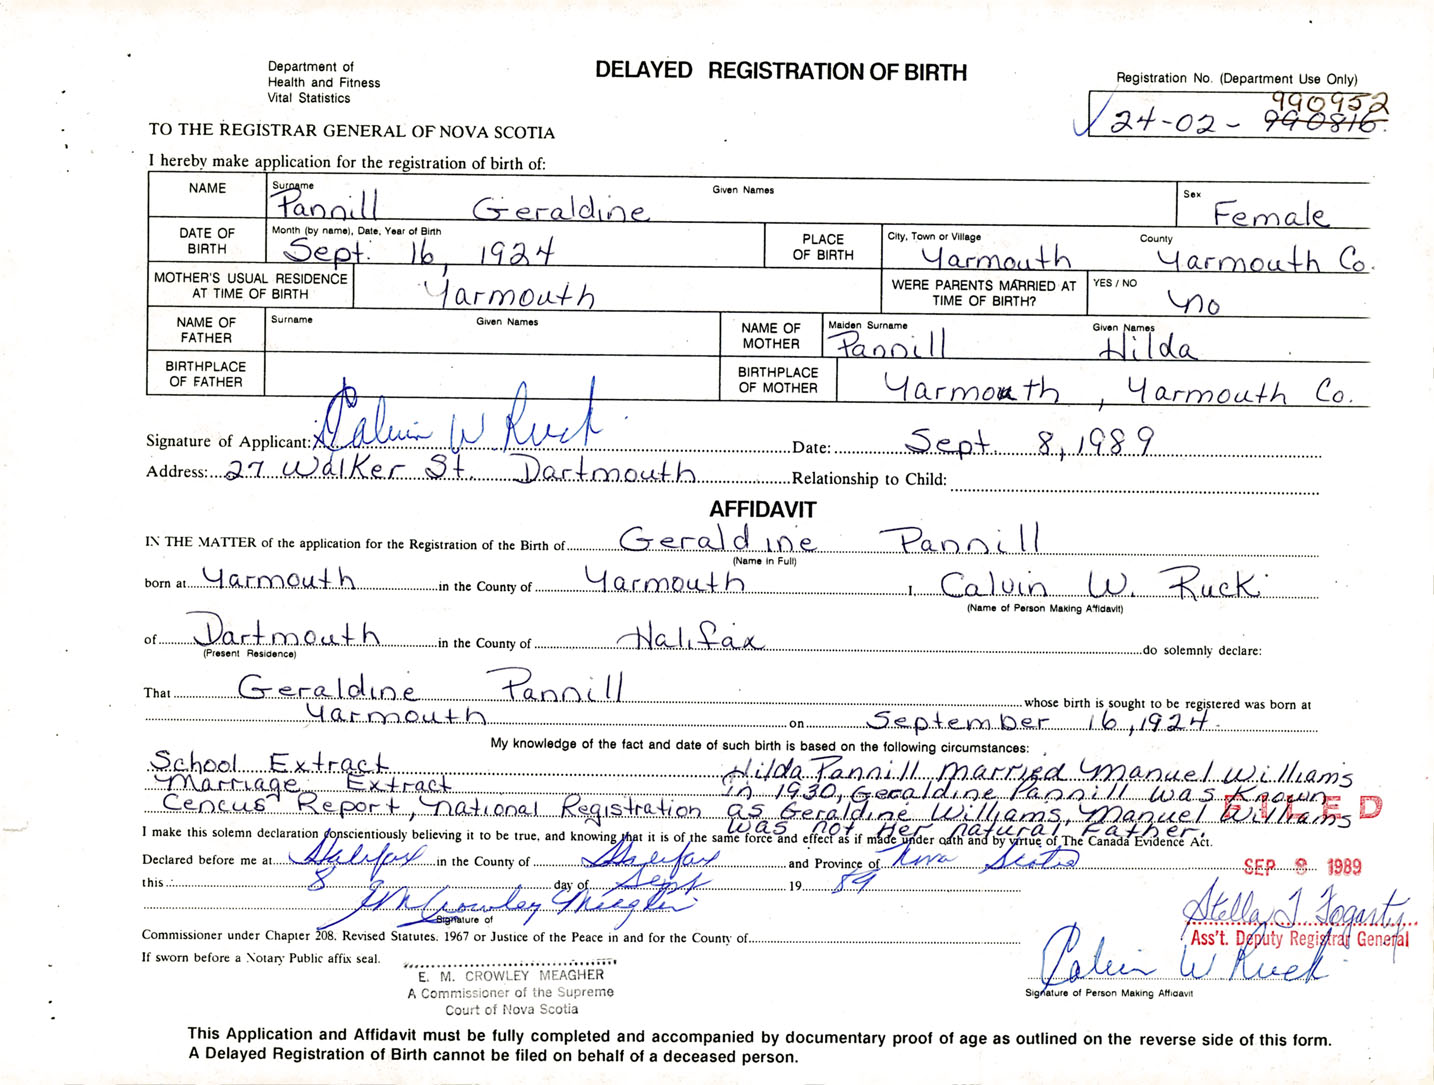 Department of
Health and Fitness
Vital Statistics
DELAYED REGISTRATION OF BIRTH
Registration No. (Department Use Only)
990952
24-02- 990816
TO THE REGISTRAR GENERAL OF NOVA SCOTIA
I hereby make application for the registration of birth of:
NAME Surname Given Names Sex
Pannill Geraldine Female
DATE OF BIRTH Month (by name), Date, Year of Birth PLACE OF BIRTH City, Town or Village County
Sept. 16, 1924 Yarmouth Yarmouth Co.
MOTHER'S USUAL RESIDENCE AT TIME OF BIRTH Yarmouth WERE PARENTS MARRIED AT TIME OF BIRTH? YES / NO No
NAME OF FATHER Surname Given Names NAME OF MOTHER Maiden Surname Given Names
Pannill Hilda
BIRTHPLACE OF FATHER BIRTHPLACE OF MOTHER Yarmouth, Yarmouth Co.
Signature of Applicant: Calvin W Ruck Date: Sept. 8, 1989
Address: 27 Walker St. Dartmouth Relationship to Child:
AFFIDAVIT
IN THE MATTER of the application for the Registration of the Birth of Geraldine Pannill
(Name in Full)
born at Yarmouth in the County of Yarmouth I, Calvin W. Ruck
(Name of Person Making Affidavit)
of Dartmouth in the County of Halifax do solemnly declare:
(Present Residence)
That Geraldine Pannill whose birth is sought to be registered was born at
Yarmouth on September 16, 1924.
My knowledge of the fact and date of such birth is based on the following circumstances:
School Extract Hilda Pannill married Manuel Williams
Marriage Extract in 1930, Geraldine Pannill was known
Cencus Report, National Registration as Geraldine Williams, Manuel Williams
was not Her natural Father.
FILED
I make this solemn declaration conscientiously believing it to be true, and knowing that it is of the same force and effect as if made under oath and by virtue of The Canada Evidence Act.
Declared before me at Halifax in the County of Halifax and Province of Nova Scotia
SEP 8 1989
this 8 day of Sept 19 89
E M Crowley Meagher
Signature of
Stella T Fogarty
Ass't. Deputy Registrar General
Commissioner under Chapter 208. Revised Statutes. 1967 or Justice of the Peace in and for the County of
If sworn before a Notary Public affix seal.
Calvin W Ruck
Signature of Person Making Affidavit
E. M. CROWLEY MEAGHER
A Commissioner of the Supreme
Court of Nova Scotia
This Application and Affidavit must be fully completed and accompanied by documentary proof of age as outlined on the reverse side of this form.
A Delayed Registration of Birth cannot be filed on behalf of a deceased person.